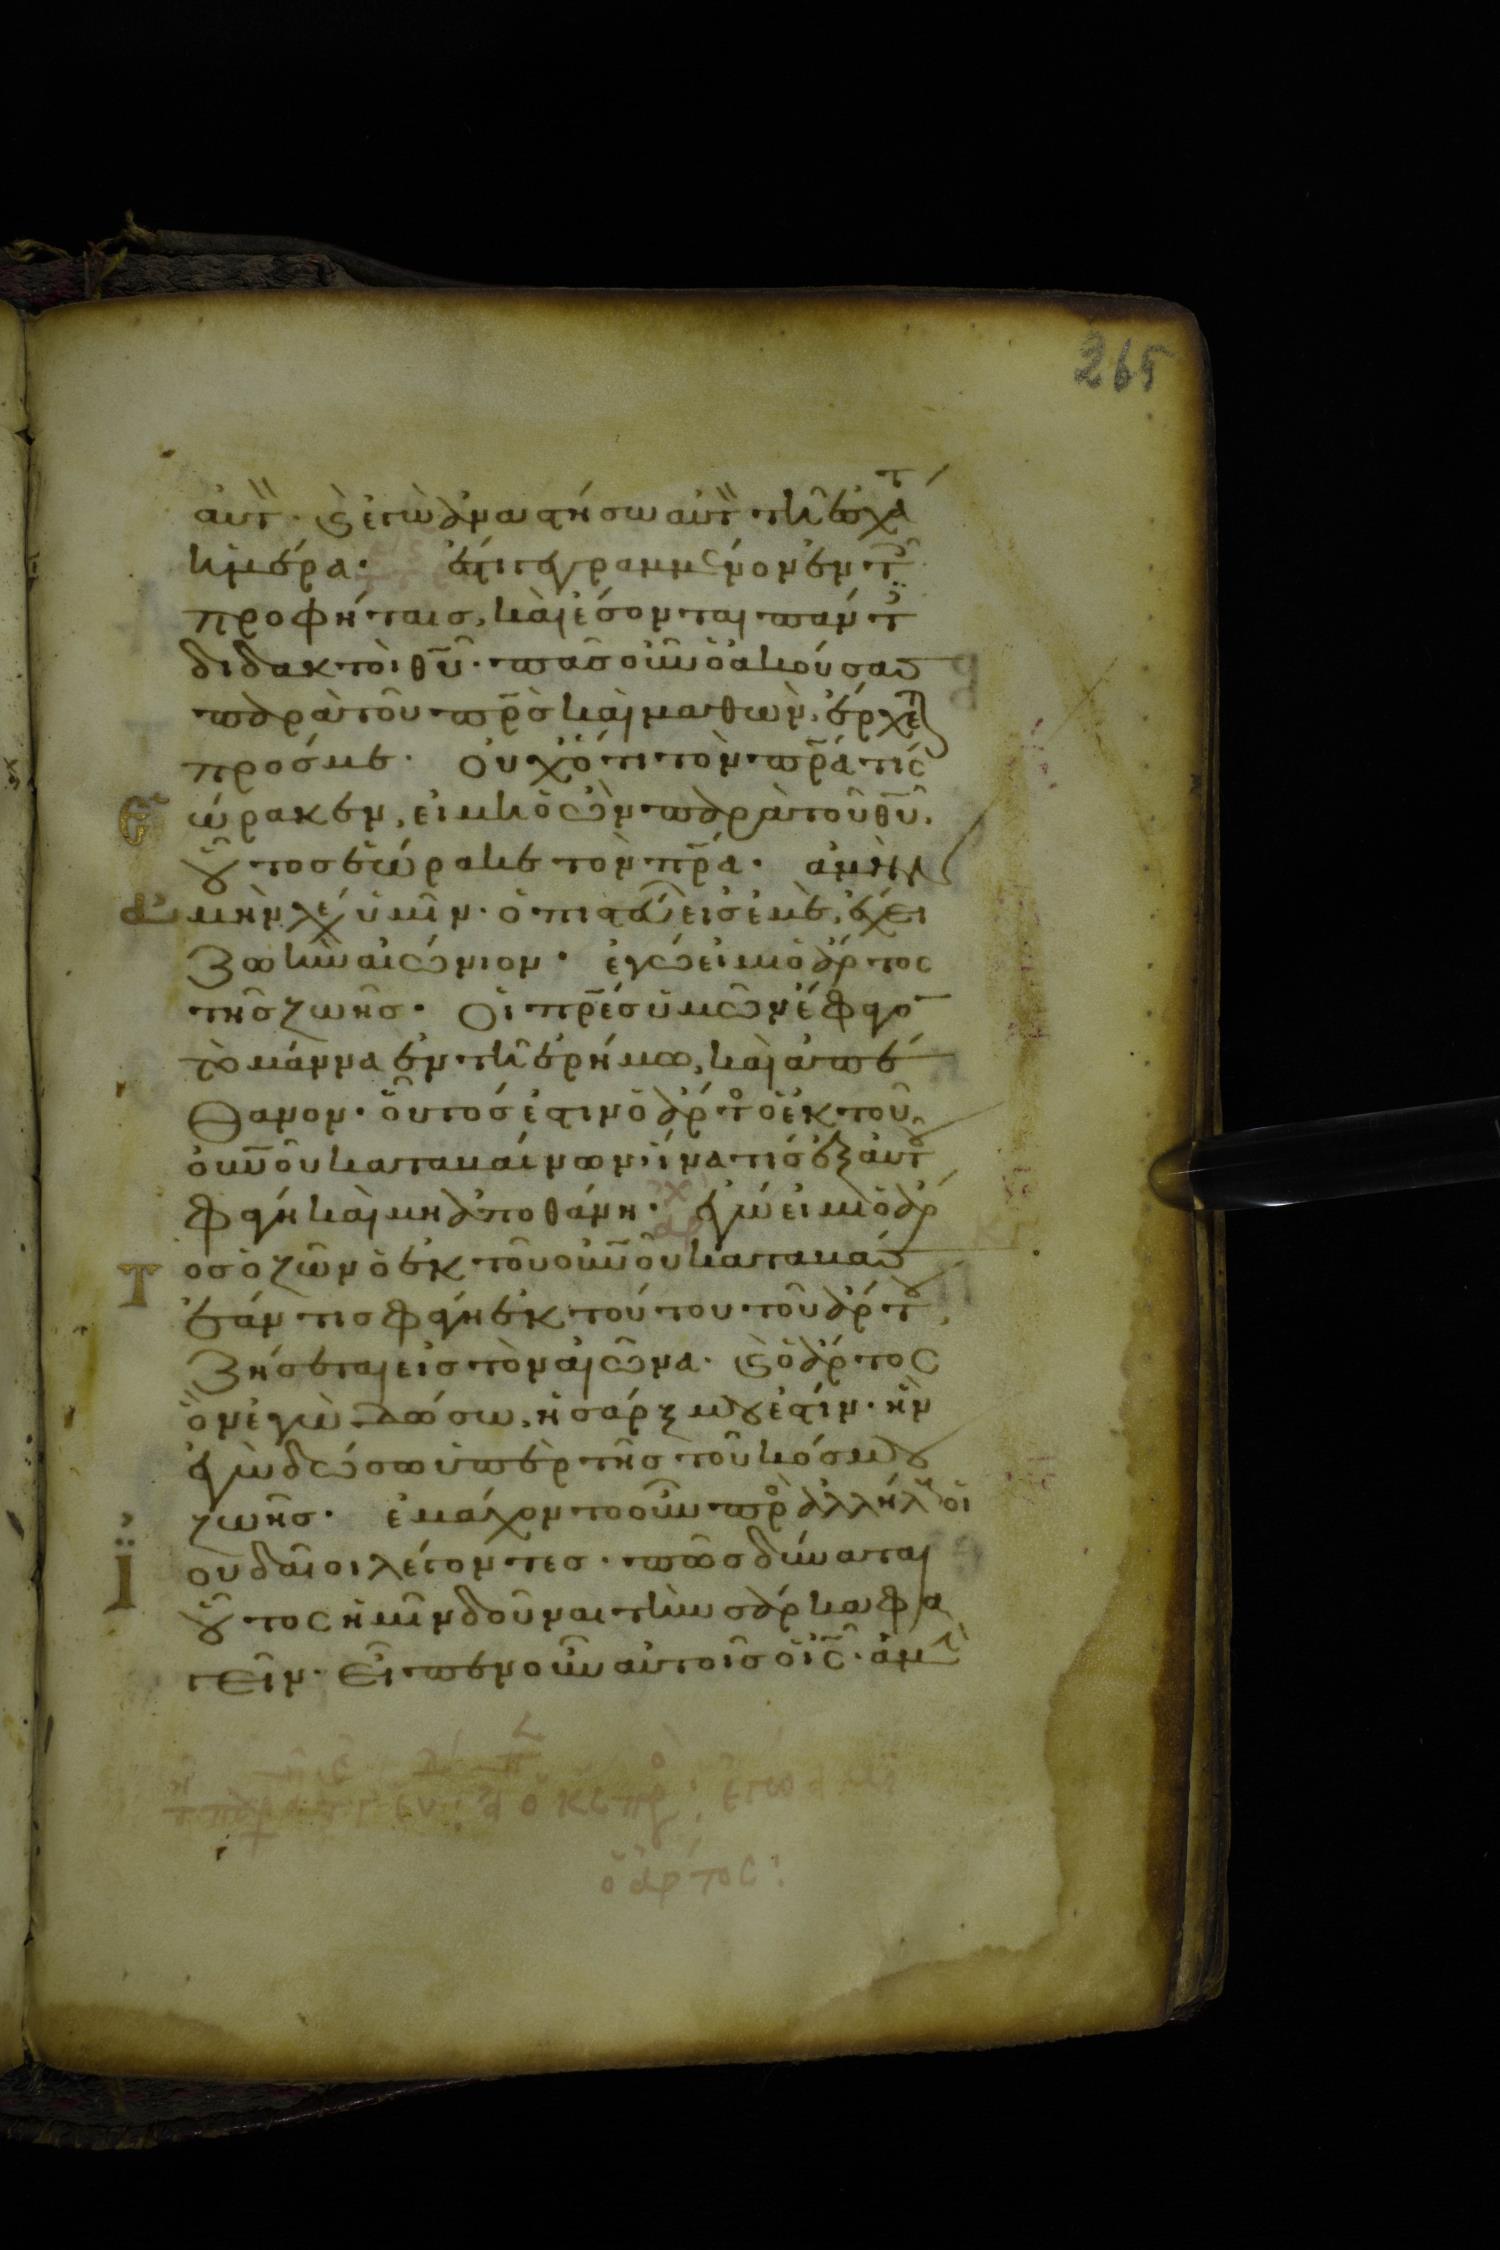 265
αὐτ̀· (καὶ) ἐγὼ ἀναστήσω αὐτ̀ τῆ ἐσχάτ
ἡμέρα· ἔστι γεγραμμένον ἐν τ
προφήταις, καὶ ἔσονται πάντ
διδακτοὶ θ̅υ̅· πᾶς οὖν ὁ ἀκούσας
παρὰ τοῦ π̅ρ̅ς̅ καὶ μαθὼν, ἔρχετ(αι)
πρός με· οὐχ ὅτι τὸν π̅ρ̅α̅ τίς
ἑώρακεν, εἰ μὴ ὁ ὢν παρὰ τοῦ θ̅υ̅,
οὗτος ἑώρακε τὸν π̅ρ̅α̅· ἀμὴν
ἀμὴν λέγ ὑμῖν· ὁ πιστεύων εἰς ἐμὲ, ἔχει
ζωὴν αἰώνιον· ἐγώ εἰμι ὁ ἄρτος
τῆς ζωῆς· Οἱ π̅ρ̅ε̅ς̅ ὑμῶν ἔφαγο
τὸ μάννα ἐν τῆ ἐρήμω, καὶ ἀπέ
θανον· οὗτός ἐστιν ὁ ἄρτ ὁ ἐκ τοῦ
ο̅υ̅ν̅ο̅υ̅ καταβαίνων, ἵνα τὶς ἐξ αὐτοῦ
φάγη καὶ μὴ ἀποθάνη· ἐγώ εἰμι ὁ ἄρτ
ος ὁ ζῶν ὁ ἐκ τοῦ ο̅υ̅ν̅ο̅υ̅ καταβάς
Ἐάν τις φάγη ἐκ τούτου τοῦ ἄρτου,
ζήσεται εἰς τὸν αἰῶνα· (καὶ) ὁ ἄρτος
ὃν ἐγὼ δώσω, ἡ σάρξ μου ἐστίν· ἣν
ἐγὼ δώσω ὑπὲρ τῆς τοῦ κόσμου
ζωῆς· ἐμάχοντο οὖν πρὸ ἀλλήλ οἱ
Ἰουδαῖοι λέγοντες· πῶς δύναται
οὗτος ἡμῖν δοῦναι τὴν σάρκα φα
γεῖν· Εἶπεν οὖν αὐτοῖς ὁ ι̅ς̅· ἀμὴν
ὁ ἄρτος: